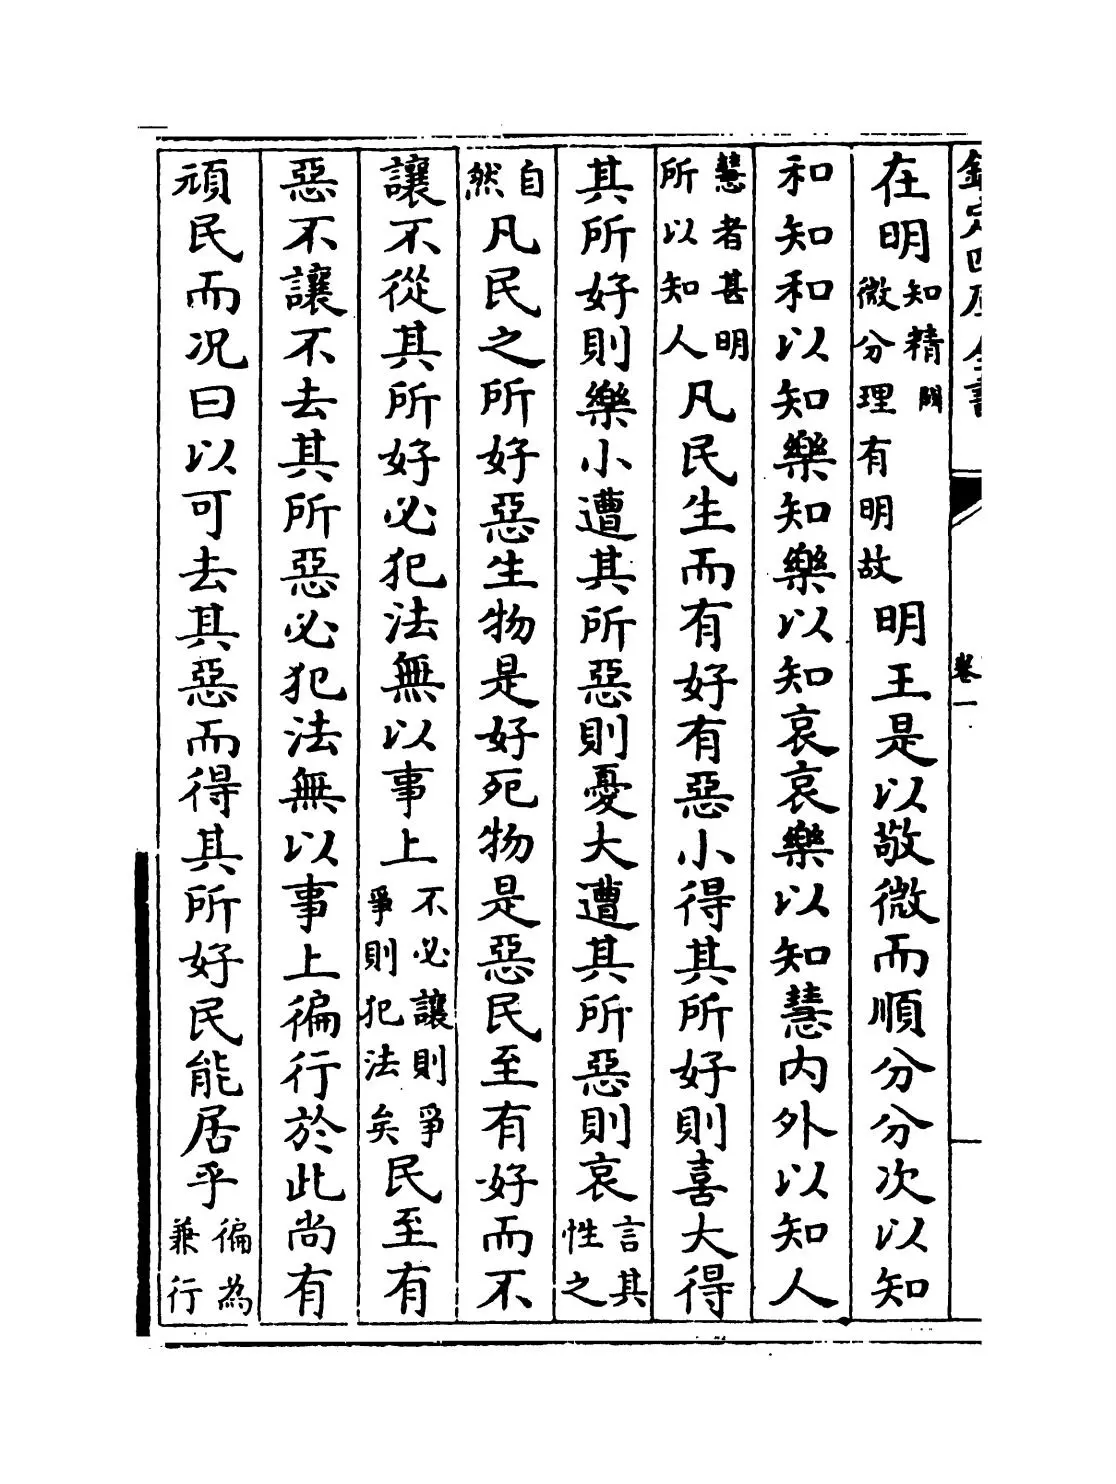 欽定四庫全書 卷一
在明知精闕微分理有明故明王是以敬微而順分分次以知
和知和以知樂知樂以知哀哀樂以知慧內外以知人
慧者甚明所以知人凡民生而有好有惡小得其所好則喜大得
其所好則樂小遭其所惡則憂大遭其所惡則哀言其性之
自然凡民之所好惡生物是好死物是惡民至有好而不
讓不從其所好必犯法無以事上不必讓則爭爭則犯法矣民至有
惡不讓不去其所惡必犯法無以事上徧行於此尚有
頑民而况曰以可去其惡而得其所好民能居乎徧為兼行